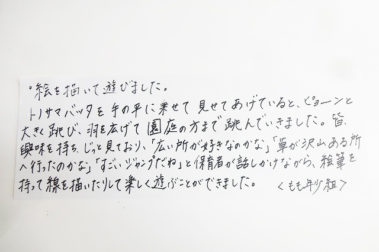 ・絵を描いて遊びました。
トノサマバッタを手の平に乗せて見せてあげていると、ピョーンと
大きく跳び、羽を広げて園庭の方まで跳んでいきました。皆、
興味を持ち、じっと見ており、「広い所が好きなのかな」「草が沢山ある所
へ行ったのかな」「すごいジャンプだね」と保育者が話しかけながら、絵筆を
持って線を描いたりして楽しく遊ぶことができました。 〈もも年少組〉